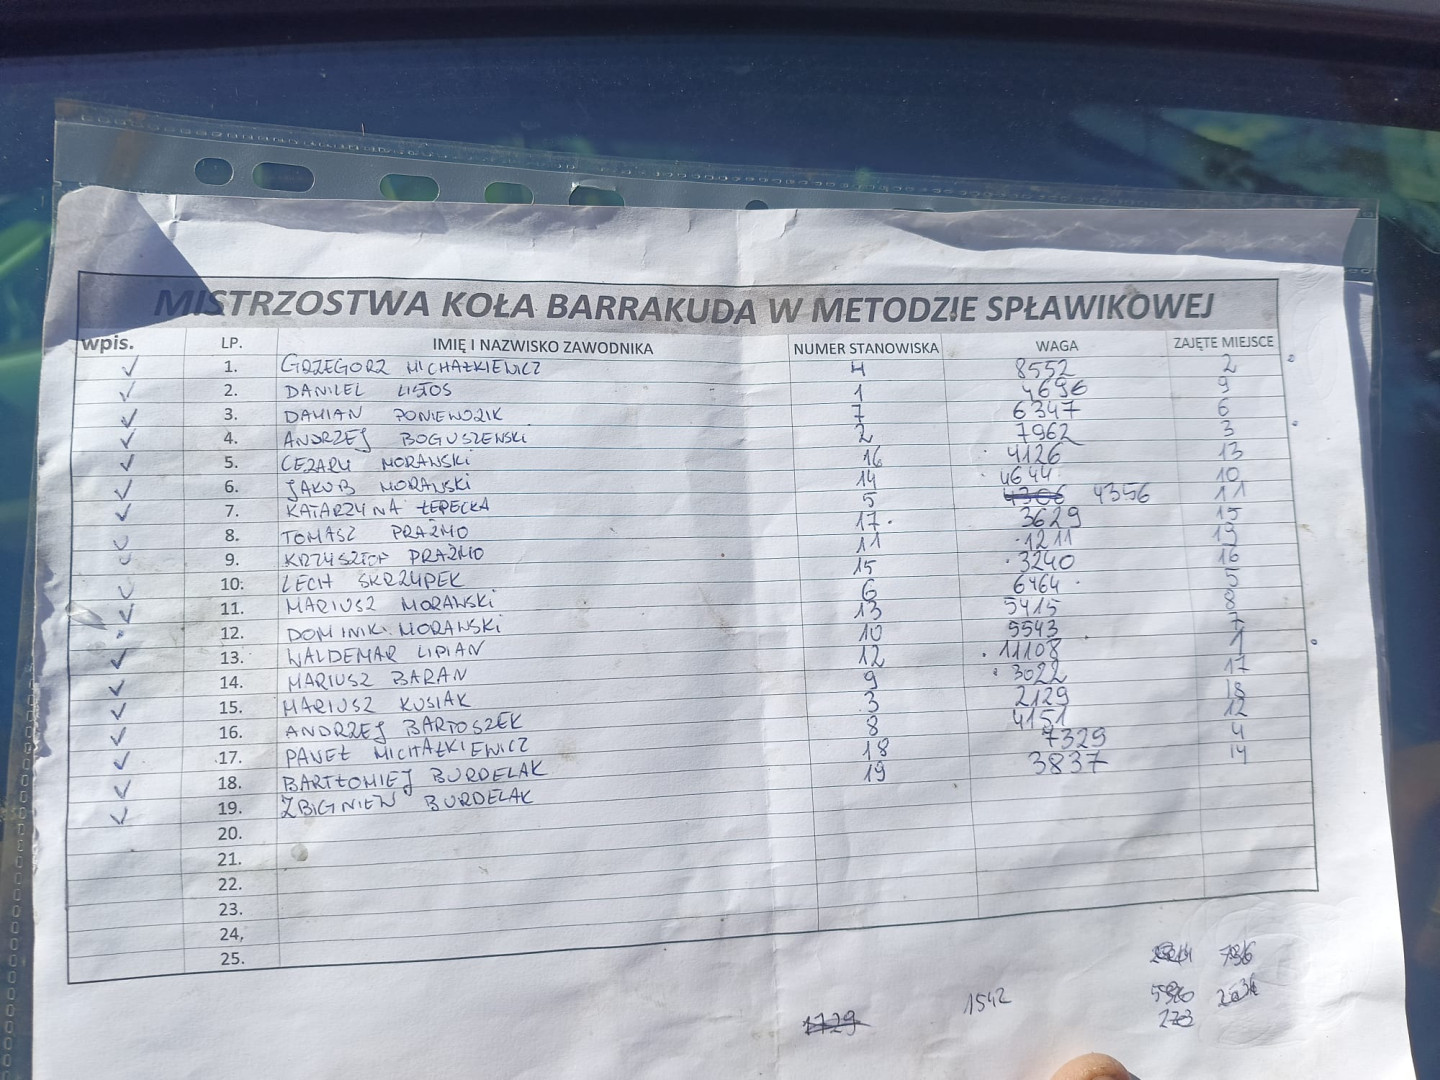 MISTRZOSTWA KOŁA BARRAKUDA W METODZIE SPŁAWIKOWEJ
wpis. LP. IMIĘ I NAZWISKO ZAWODNIKA NUMER STANOWISKA WAGA ZAJĘTE MIEJSCE
✓ 1. GRZEGORZ MICHAŁKIEWICZ 4 8552 2
✓ 2. DANILEL LISTOS 1 4696 9
✓ 3. DAMIAN PONIEWOZIK 7 6347 6
✓ 4. ANDRZEJ BOGUSZEWSKI 2 7962 3
✓ 5. CEZARY MORAWSKI 16 4126 13
✓ 6. JAKUB MORAWSKI 14 4644 10
✓ 7. KATARZYNA ŁEPECKA 5 4356 11
8. TOMASZ PRAŻMO 17. 3629 15
9. KRZYSZTOF PRAŻMO 11 1211 19
10. LECH SKRZYPEK 15 3240 16
✓ 11. MARIUSZ MORAWSKI 6 6464 5
12. DOMINIK MORAWSKI 13 5415 8
✓ 13. WALDEMAR LIPIAN 10 5543 7
✓ 14. MARIUSZ BARAN 12 11108 1
✓ 15. MARIUSZ KUSIAK 9 3022 17
✓ 16. ANDRZEJ BARTOSZEK 3 2129 18
✓ 17. PAWEŁ MICHAŁKIEWICZ 8 4151 12
✓ 18. BARTŁOMIEJ BURDELAK 18 7329 4
✓ 19. ZBIGNIEW BURDELAK 19 3837 14
20.
21.
22.
23.
24,
25.
1542
1729